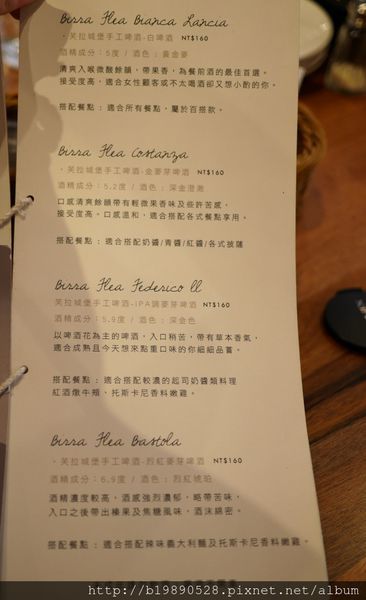 Birra Flea Bianca Lancia
・芙拉城堡手工啤酒-白啤酒 NT$160
酒精成分：5度 / 酒色：黃金麥
清爽入喉微酸餘韻，帶果香，為餐前酒的最佳首選。
接受度高，適合女性顧客或不太喝酒卻又想小酌的你。
搭配餐點：適合所有餐點，屬於百搭款。
Birra Flea Costanza
・芙拉城堡手工啤酒-金麥芽啤酒 NT$160
酒精成分：5.2度 / 酒色：深金澄澈
口感清爽餘韻帶有輕微果香味及些許苦感，
接受度高。口感溫和，適合搭配各式餐點享用。
搭配餐點：適合搭配奶醬/青醬/紅醬/各式披薩
Birra Flea Federico ll
芙拉城堡手工啤酒-IPA調麥芽啤酒 NT$160
酒精成分：5.9度 / 酒色：深金色
以啤酒花為主的啤酒，入口稍苦，帶有草本香氣，
適合成熟且今天想來點重口味的你細細品嘗。
搭配餐點：適合搭配較濃的起司奶醬類料理
紅酒燉牛頰、托斯卡尼香料嫩雞。
Birra Flea Bastola
・芙拉城堡手工啤酒-烈紅麥芽啤酒 NT$160
酒精成分：6.9度 / 酒色：烈紅琥珀
酒精濃度較高，酒感強烈濃郁，略帶苦味，
入口之後帶出榛果及焦糖風味，酒沫綿密。
搭配餐點：適合搭配辣味義大利麵及托斯卡尼香料嫩雞。
http://b19890528.pixnet.net/album